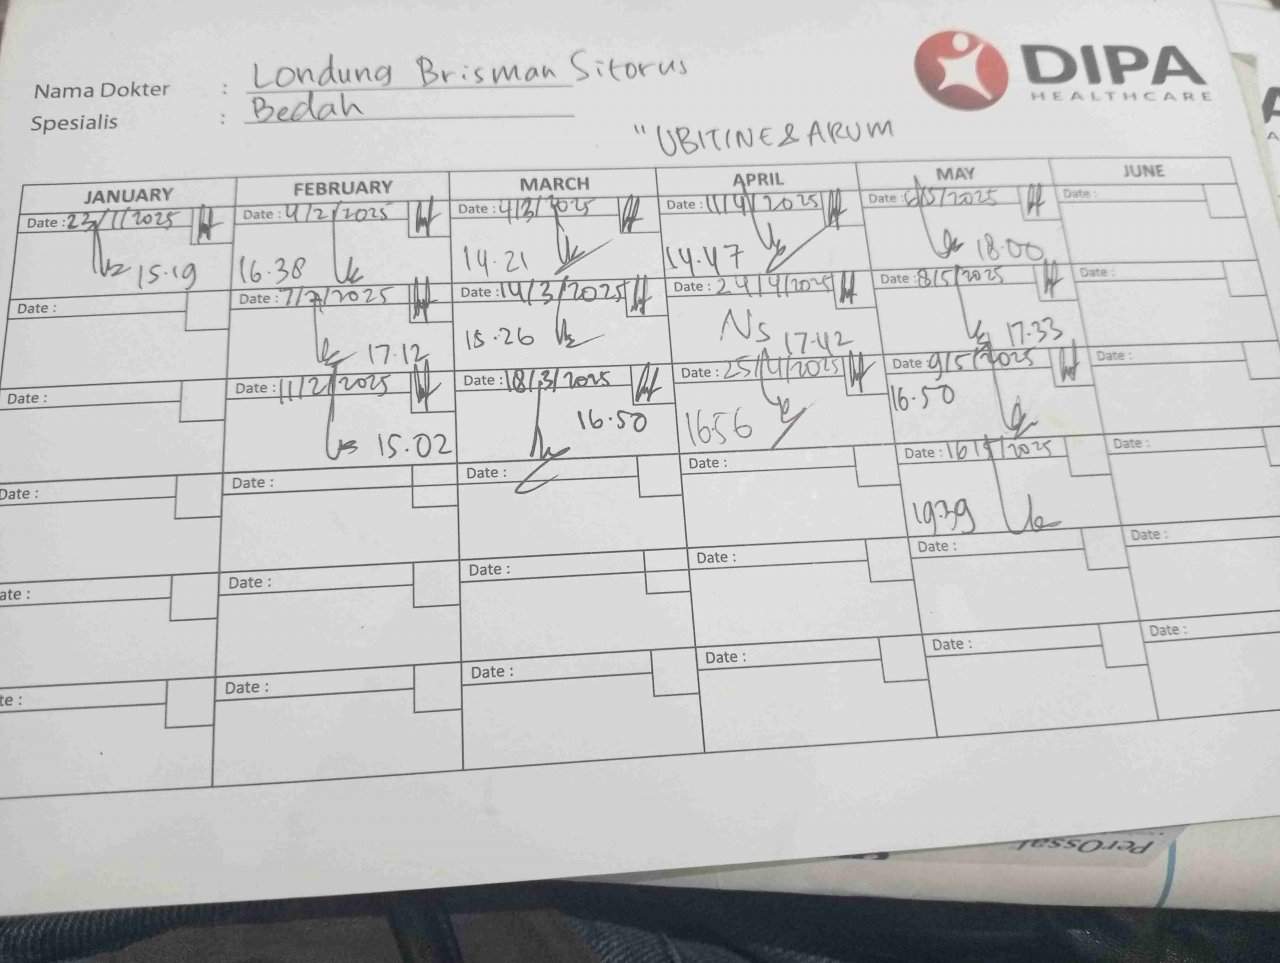 DIPA
HEALTHCARE
Nama Dokter : Londung Brisman Sitorus
Spesialis : Bedah
"UBITINE & ARUM
JANUARY FEBRUARY MARCH APRIL MAY JUNE
Date : 23/1/2025 Date : 4/2/2025 Date : 4/3/2025 Date : 11/4/2025 Date : 6/5/2025 Date :
15.19 16.38 14.21 14.47 18.00
Date : Date : 7/2/2025 Date : 14/3/2025 Date : 24/4/2025 Date : 8/5/2025 Date :
17.12 15.26 Ns 17.42 17.33
Date : Date : 11/2/2025 Date : 18/3/2025 Date : 25/4/2025 Date : 9/5/2025 Date :
15.02 16.50 16.56 16.50
Date : Date : Date : Date : Date : 16/5/2025 Date :
19.39
ate : Date : Date : Date : Date : Date :
te : Date : Date : Date : Date : Date :
PerOssal